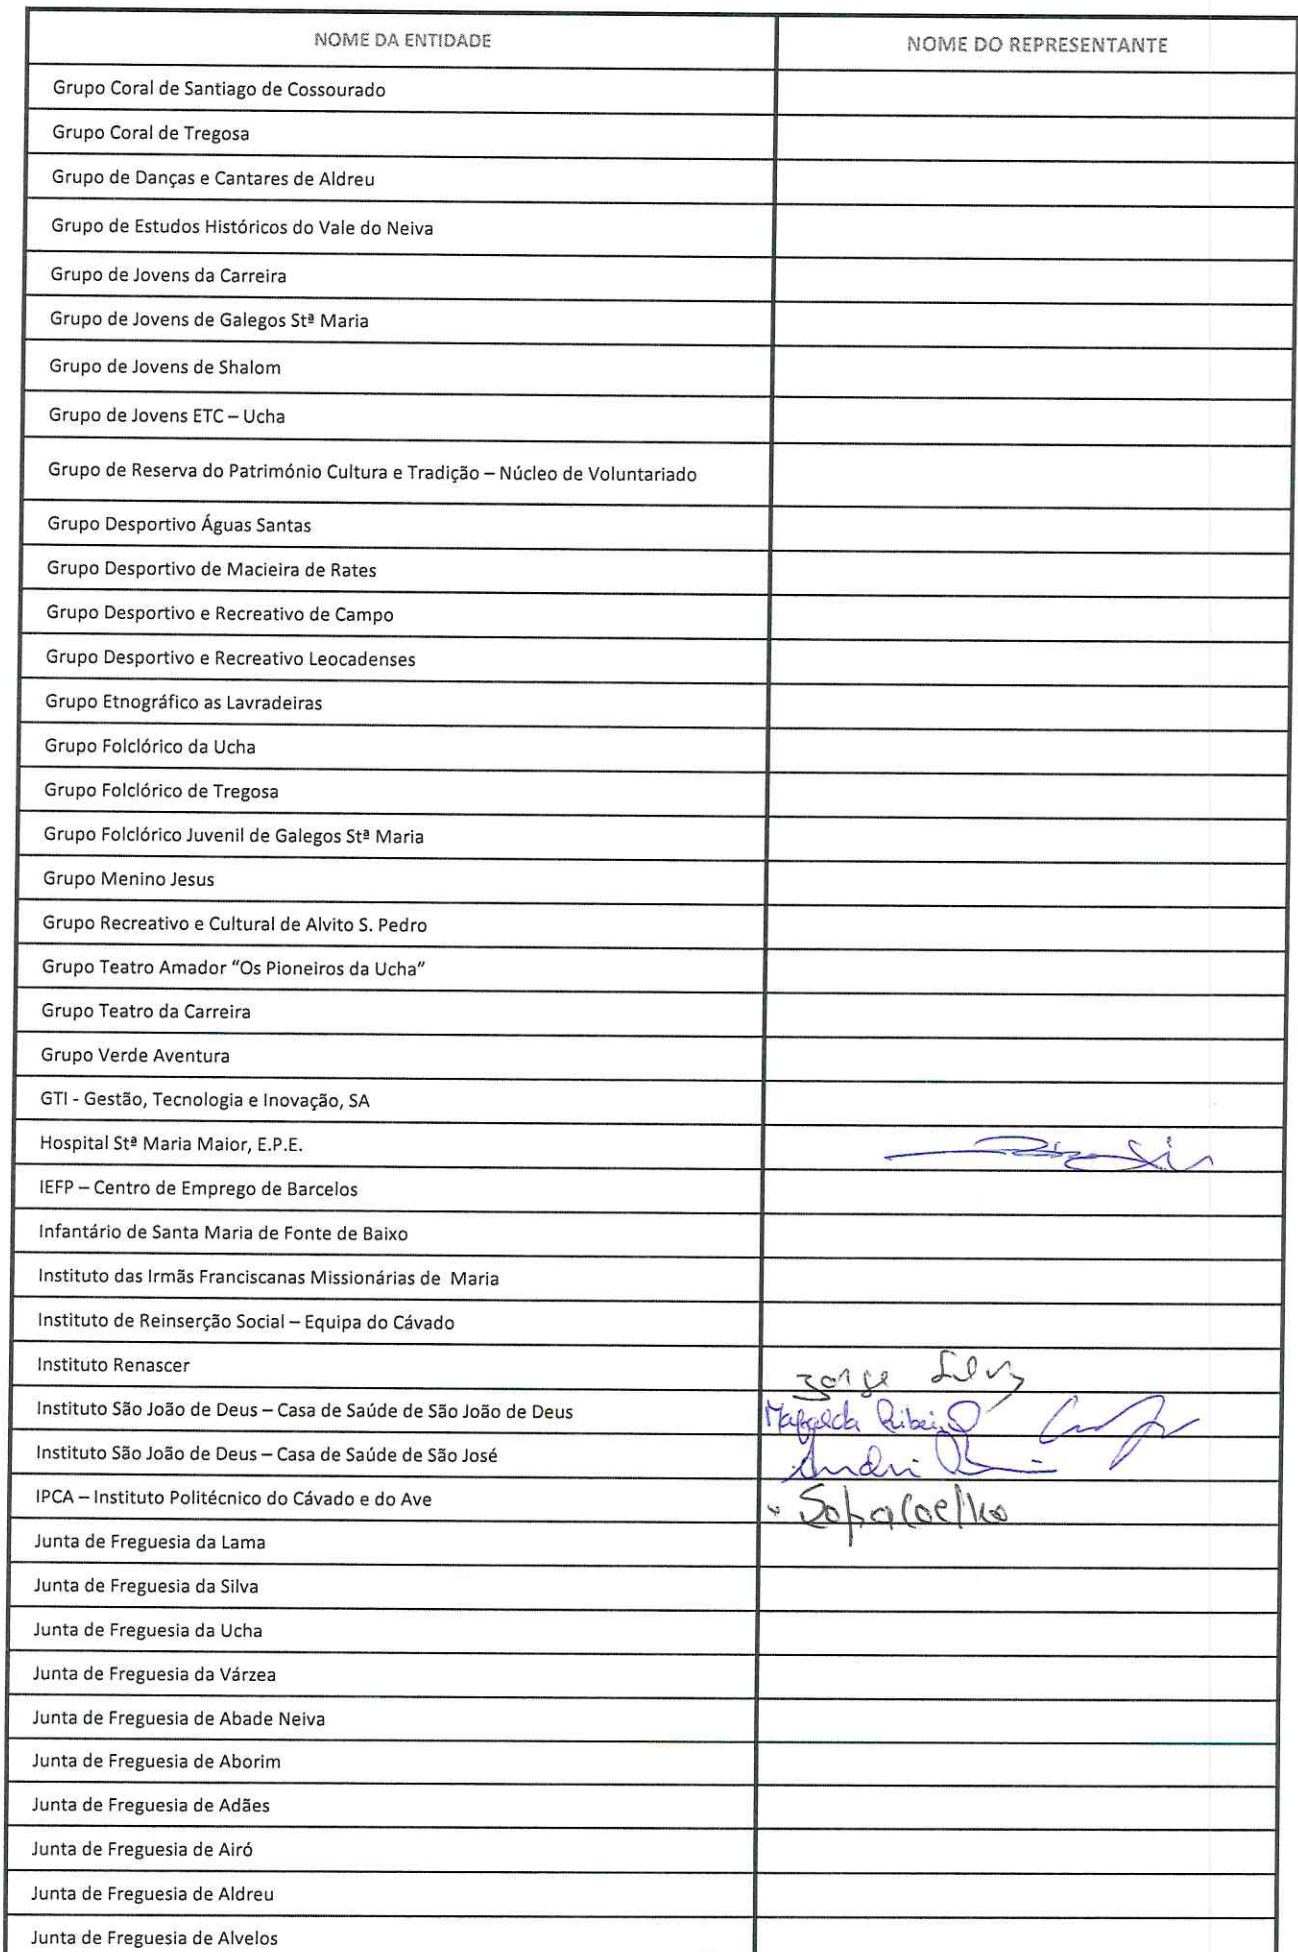 NOME DA ENTIDADE NOME DO REPRESENTANTE
Grupo Coral de Santiago de Cossourado
Grupo Coral de Tregosa
Grupo de Danças e Cantares de Aldreu
Grupo de Estudos Históricos do Vale do Neiva
Grupo de Jovens da Carreira
Grupo de Jovens de Galegos Stª Maria
Grupo de Jovens de Shalom
Grupo de Jovens ETC – Ucha
Grupo de Reserva do Património Cultura e Tradição – Núcleo de Voluntariado
Grupo Desportivo Águas Santas
Grupo Desportivo de Macieira de Rates
Grupo Desportivo e Recreativo de Campo
Grupo Desportivo e Recreativo Leocadenses
Grupo Etnográfico as Lavradeiras
Grupo Folclórico da Ucha
Grupo Folclórico de Tregosa
Grupo Folclórico Juvenil de Galegos Stª Maria
Grupo Menino Jesus
Grupo Recreativo e Cultural de Alvito S. Pedro
Grupo Teatro Amador “Os Pioneiros da Ucha”
Grupo Teatro da Carreira
Grupo Verde Aventura
GTI - Gestão, Tecnologia e Inovação, SA
Hospital Stª Maria Maior, E.P.E.
IEFP – Centro de Emprego de Barcelos
Infantário de Santa Maria de Fonte de Baixo
Instituto das Irmãs Franciscanas Missionárias de Maria
Instituto de Reinserção Social – Equipa do Cávado
Instituto Renascer Jorge Silva
Instituto São João de Deus – Casa de Saúde de São João de Deus Mafalda Ribeiro
Instituto São João de Deus – Casa de Saúde de São José André
IPCA – Instituto Politécnico do Cávado e do Ave Sofia Coelho
Junta de Freguesia da Lama
Junta de Freguesia da Silva
Junta de Freguesia da Ucha
Junta de Freguesia da Várzea
Junta de Freguesia de Abade Neiva
Junta de Freguesia de Aborim
Junta de Freguesia de Adães
Junta de Freguesia de Airó
Junta de Freguesia de Aldreu
Junta de Freguesia de Alvelos